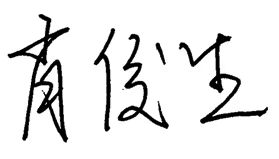 肖俊生